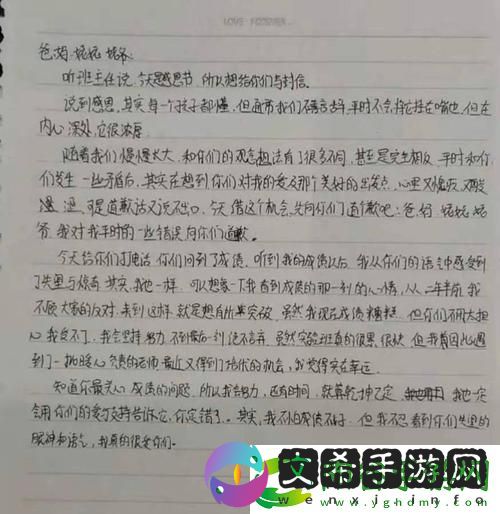 LOVE FOREVER
爸、妈、妮妮、爷爷:
听班主任说,今天是感恩节,所以想给你们写封信。
说到感恩,其实每一个孩子都懂,但通常我们不善言辞,平时不会将它挂在嘴边,但在
内心深处,它很浓厚。
随着我们慢慢长大,和你们的观念想法有了很多不同,甚至是完全相反,平时和你
们发生一些矛盾后,其实在想到你们对我的爱及那个美好的出发点,心里又愧疚,
可是道歉话又说不出口,今天借这个机会,先向你们道个歉吧:爸、妈、妮妮、爷
爷,我对我平时的一些错误向你们道歉。
今天给你们打电话,你们问到了成绩,听到我的成绩以后,我从你们的语气中感受到
了失望与惊奇,其实,我也一样,可以想象一下我看到成绩的那一刻的心情,从二年前,我
不顾大家的反对,来到这样,就是想有所突破,虽然我现在成绩糟糕,但你们不用太担
心,我受不了,我会坚持努力,不到最后一刻绝不言弃。虽然实验班真的很累,很快,但我有因此遇
到了一批暖心负责的老师,最近又得到了培优的机会,我觉得实在幸运。
知道你最关心成绩的问题,所以我会努力,还有时间,就算乾坤已定,我也一定
会用你们的爱与支持告诉它,你定错了。其实,我不怕成绩不好,但我不忍看到你们失望的
眼神和语气,我真的很爱你们。
文希手游网
wenxijinfo
www.yghdmy.com